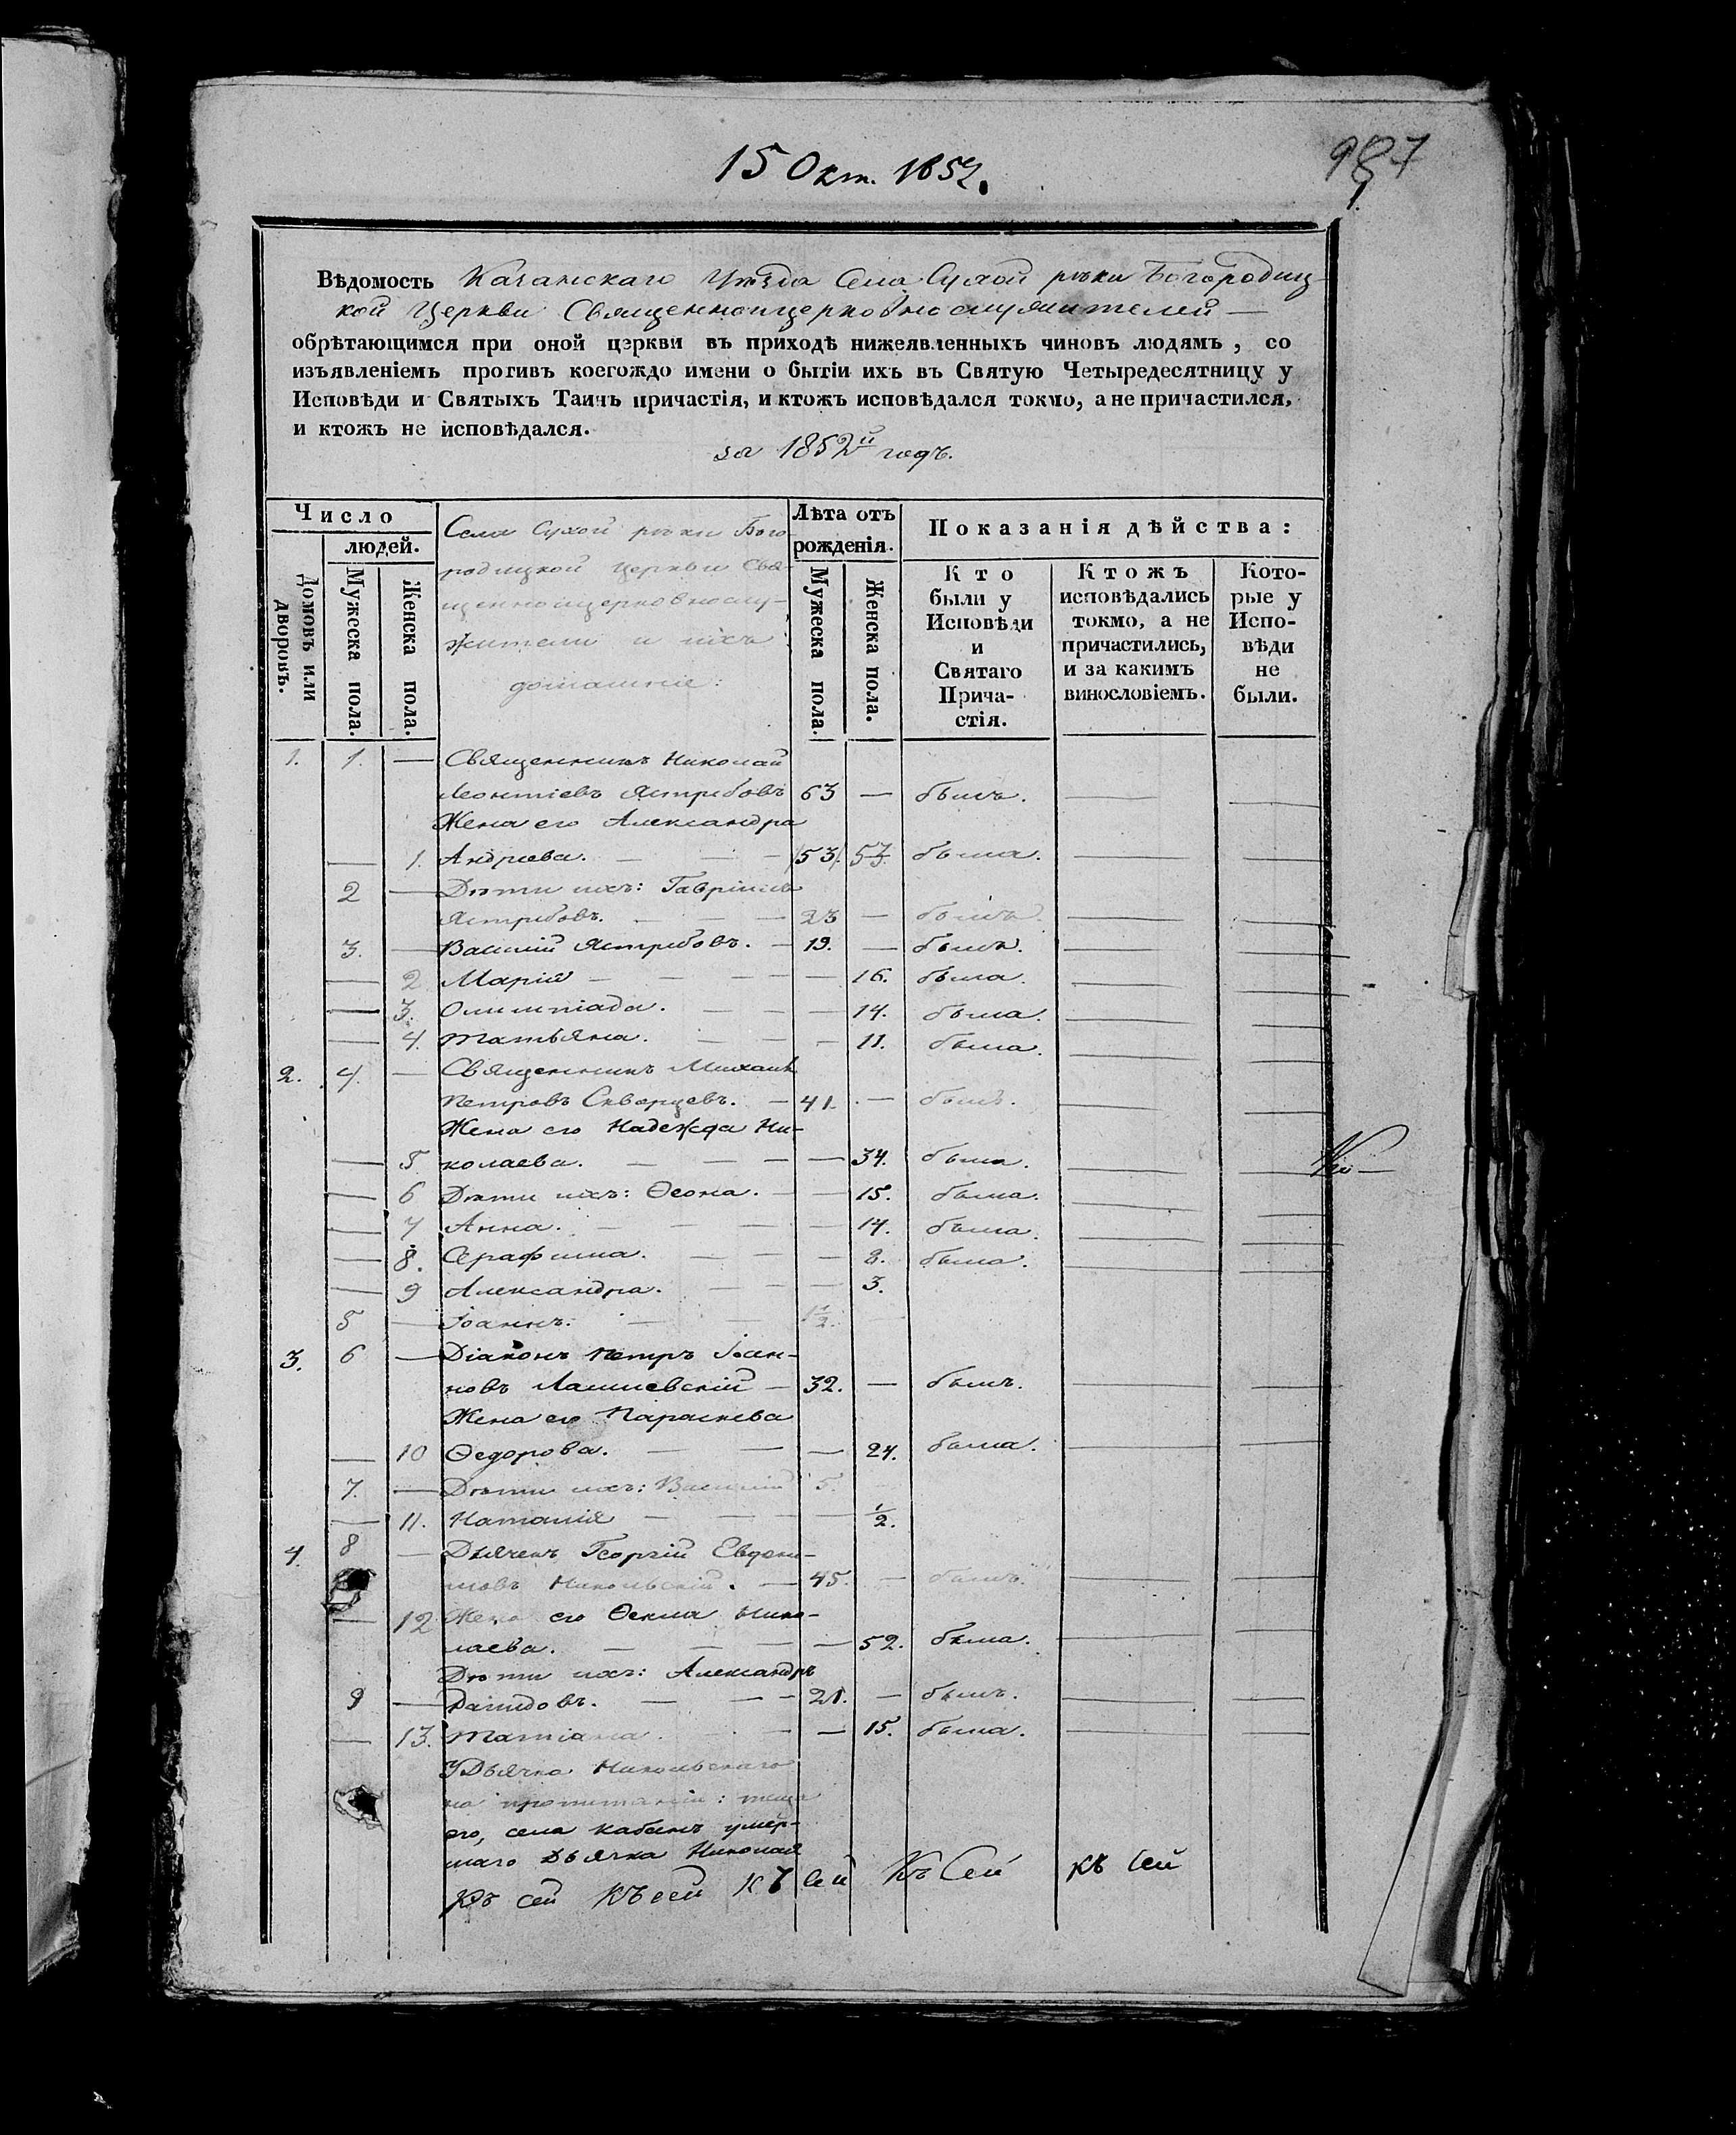 15 Окт. 1852.
987
Вѣдомость Казанскаго Уѣзда Села Сухой рѣки Богородиц-
кой Церкви Священноицерковнослужителей —
обрѣтающимся при оной церкви въ приходѣ нижеявленныхъ чиновъ людямъ, со
изъявленіемъ противъ коегождо имени о бытіи ихъ въ Святую Четыредесятницу у
Исповѣди и Святыхъ Таинъ причастія, и ктожъ исповѣдался токмо, а не причастился,
и ктожъ не исповѣдался.
за 1852й годъ.
Число
людей.
Домовъ или дворовъ.
Мужеска пола.
Женска пола.
Села Сухой рѣки Бого-
родицкой церкви Свя-
щенноицерковнослу-
жители и ихъ
домашніе:
Лѣта отъ
рожденія.
Мужеска пола.
Женска пола.
Показанія дѣйства:
Кто
были у
Исповѣди
и
Святаго
Прича-
стія.
Ктожъ
исповѣдались
токмо, а не
причастились,
и за какимъ
винословіемъ.
Кото-
рые у
Испо-
вѣди
не
были.
1. 1. — Священникъ Николай
Леонтіевъ Ястребовъ 63 — былъ. — —
Жена его Александра
— 1. Андреева. — — — 53 53 была. —
2 — Дѣти ихъ: Гавріилъ
Ястребовъ. — — — 23 — былъ. — —
3. — Василій Ястребовъ. — 19. — былъ. — —
— 2 Марія — — — — — 16. была. — —
— 3. Олимпіада. — — — — 14. была. — —
— 4. Татьяна. — — — — 11. была. — —
2. 4. — Священникъ Михаилъ
Петровъ Скворцевъ. — 41. — былъ. — —
Жена его Надежда Ни-
— 5. колаева. — — — — — 34. была. — —
— 6 Дѣти ихъ: Ѳеона. — — 15. была. — —
— 7 Анна. — — — — — 14. была. — —
— 8. Серафима. — — — 8. была. — —
— 9 Александра. — — — 3.
5 — Іоаннъ. — — 1½. —
3. 6 — Діаконъ Петръ Іоан-
новъ Лаишевскій — 32. — былъ. — —
Жена его Параскева
— 10 Ѳедорова. — — — 24. была. — —
7. — Дѣти ихъ: Василій 5.
— 11. Наталія — — — — ½.
4. 8 — Дьячекъ Георгій Евдоки-
мовъ Никольскій. — 45. — былъ. — —
— 12 Жена его Ѳекла Нико-
лаева. — — — — — 52. была. — —
Дѣти ихъ: Александръ
9 — Давидовъ. — — — 21. — былъ. — —
— 13. Татіана. — — — 15. была. — —
У Дьячка Никольскаго
на пропитаніи: теща
его, села Кабанъ умер-
шаго Дьячка Николая
Къ сей Къ сей Къ сей Къ Сей къ сей